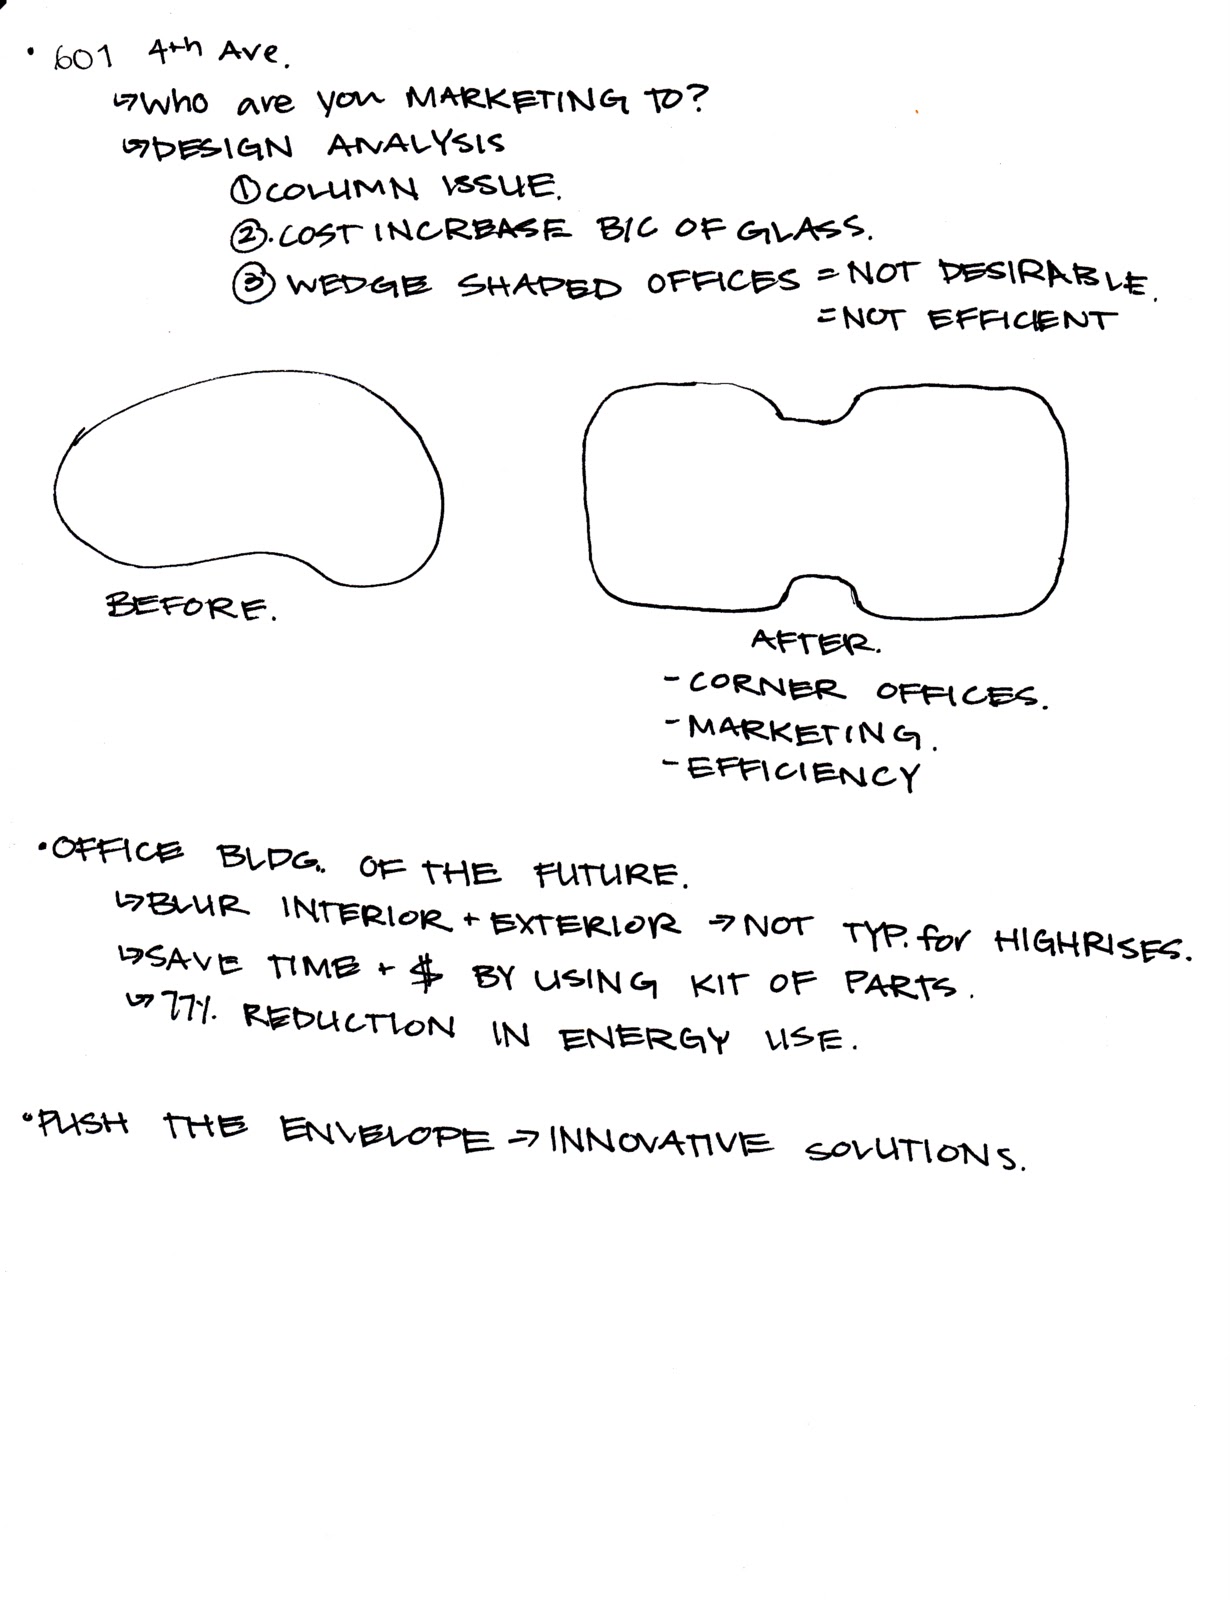 • 601 4th Ave.
↳ Who are you MARKETING TO?
↳ DESIGN ANALYSIS
① COLUMN ISSUE.
②. COST INCREASE B/C OF GLASS.
③ WEDGE SHAPED OFFICES = NOT DESIRABLE.
= NOT EFFICIENT
BEFORE.
AFTER.
- CORNER OFFICES.
- MARKETING.
- EFFICIENCY
• OFFICE BLDG. OF THE FUTURE.
↳ BLUR INTERIOR + EXTERIOR → NOT TYP. for HIGHRISES.
↳ SAVE TIME + $ BY USING KIT OF PARTS.
↳ 77% REDUCTION IN ENERGY USE.
• PUSH THE ENVELOPE → INNOVATIVE SOLUTIONS.